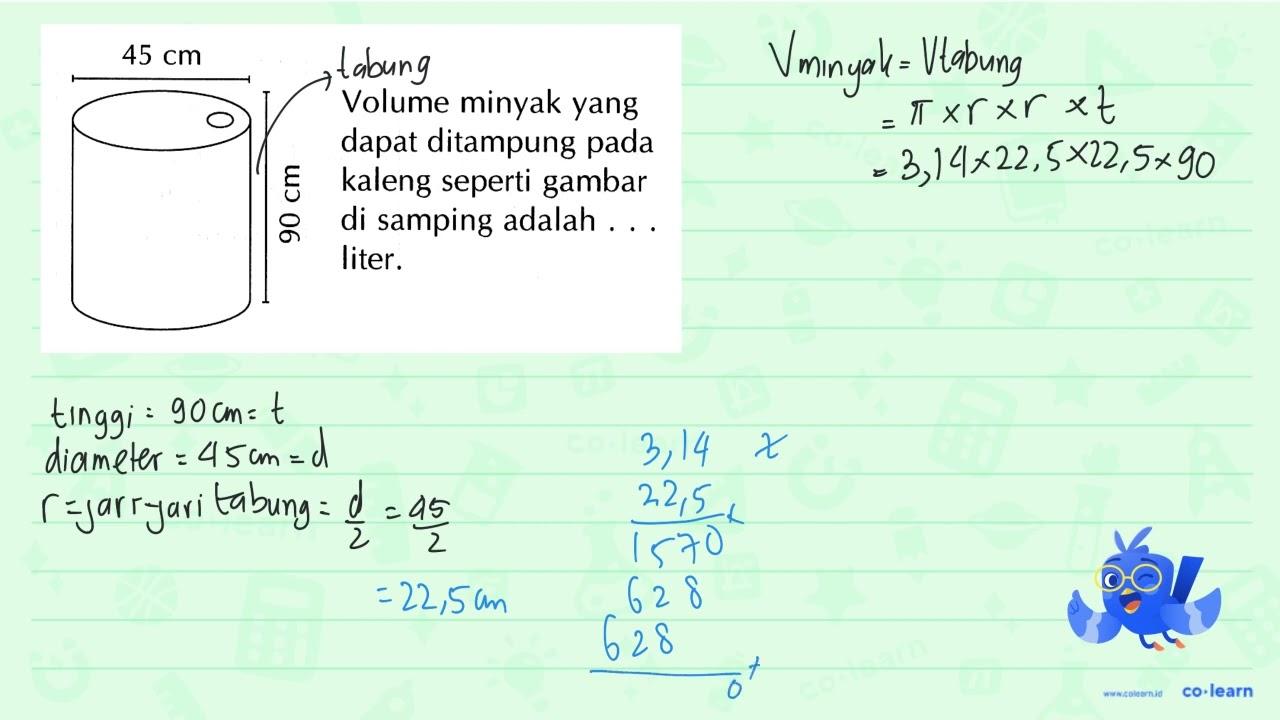 45 cm
90 cm
tabung
Volume minyak yang
dapat ditampung pada
kaleng seperti gambar
di samping adalah . . .
liter.
Vminyak = Vtabung
= π × r × r × t
= 3,14 × 22,5 × 22,5 × 90
tinggi = 90 cm = t
diameter = 45 cm = d
r = jari-jari tabung = d/2 = 45/2
= 22,5 cm
3,14 x
22,5 x
1570
628
628
0 +
www.colearn.id co·learn